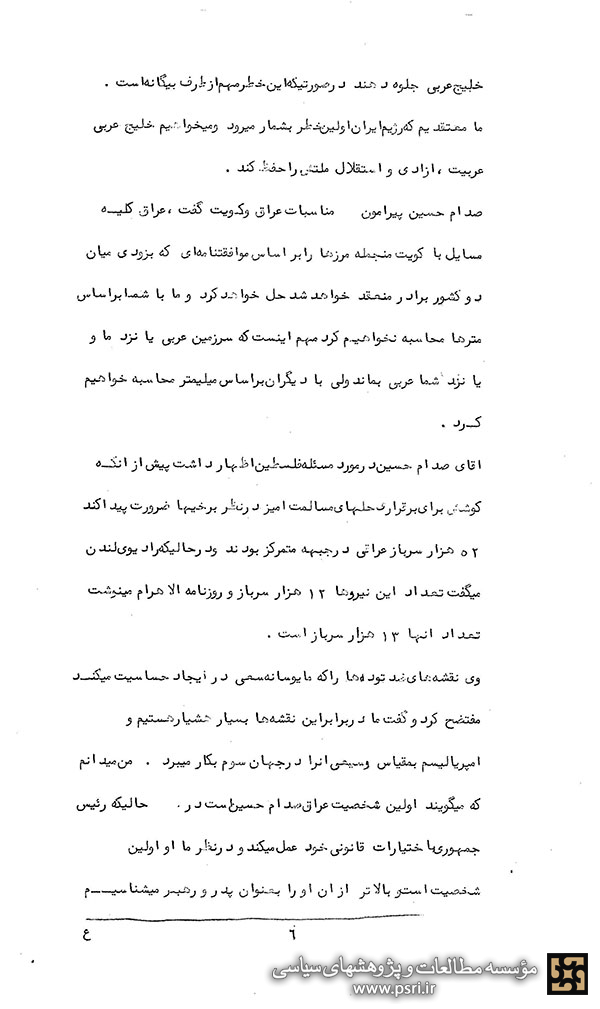 خلیج عربی جلوه دهند درصورتیکه این خطر مهم از طرف بیگانه است .
ما معتقدیم که رژیم ایران اولین خطر بشمار میرود ومیخواهیم خلیج عربی
عربیت ، ازادی و استقلال ملتش را حفظ کند .
صدام حسین پیرامون مناسبات عراق وکویت گفت ، عراق کلیه
مسایل با کویت منجمله مرزها را بر اساس موافقتنامه‌ای که بزودی میان
دو کشور برادر منعقد خواهد شد حل خواهد کرد و ما با شما براساس
مترها محاسبه نخواهیم کرد مهم اینست که سرزمین عربی یا نزد ما و
یا نزد شما عربی بماند ولی با دیگران براساس میلیمتر محاسبه خواهیم
کرد .
اقای صدام حسین درمورد مسئله فلسطین اظهار داشت پیش از انکه
کوشش برای برقراری حلهای مسالمت امیز درنظر برخیها ضرورت پیدا کند
۵۲ هزار سرباز عراقی درجبهه متمرکز بودند ودرحالیکه رادیوی لندن
میگفت تعداد این نیروها ۱۲ هزار سرباز و روزنامه الاهرام مینوشت
تعداد انها ۱۳ هزار سرباز است .
وی نقشه‌های ضد توده‌ها را که مایوسانه سعی در ایجاد حساسیت میکند
مفتضح کرد و گفت ما دربرابر این نقشه‌ها بسیار هشیار هستیم و
امپریالیسم بمقیاس وسیعی انرا درجهان سوم بکار میبرد . من میدانم
که میگویند اولین شخصیت عراق صدام حسین است در . حالیکه رئیس
جمهوری با ختیارات قانونی خود عمل میکند و درنظر ما او اولین
شخصیت است و بالاتر از ان او را بعنوان پدر و رهبر میشناسیم
٦ ع
مؤسسه مطالعات و پژوهشهای سیاسی
www.psri.ir